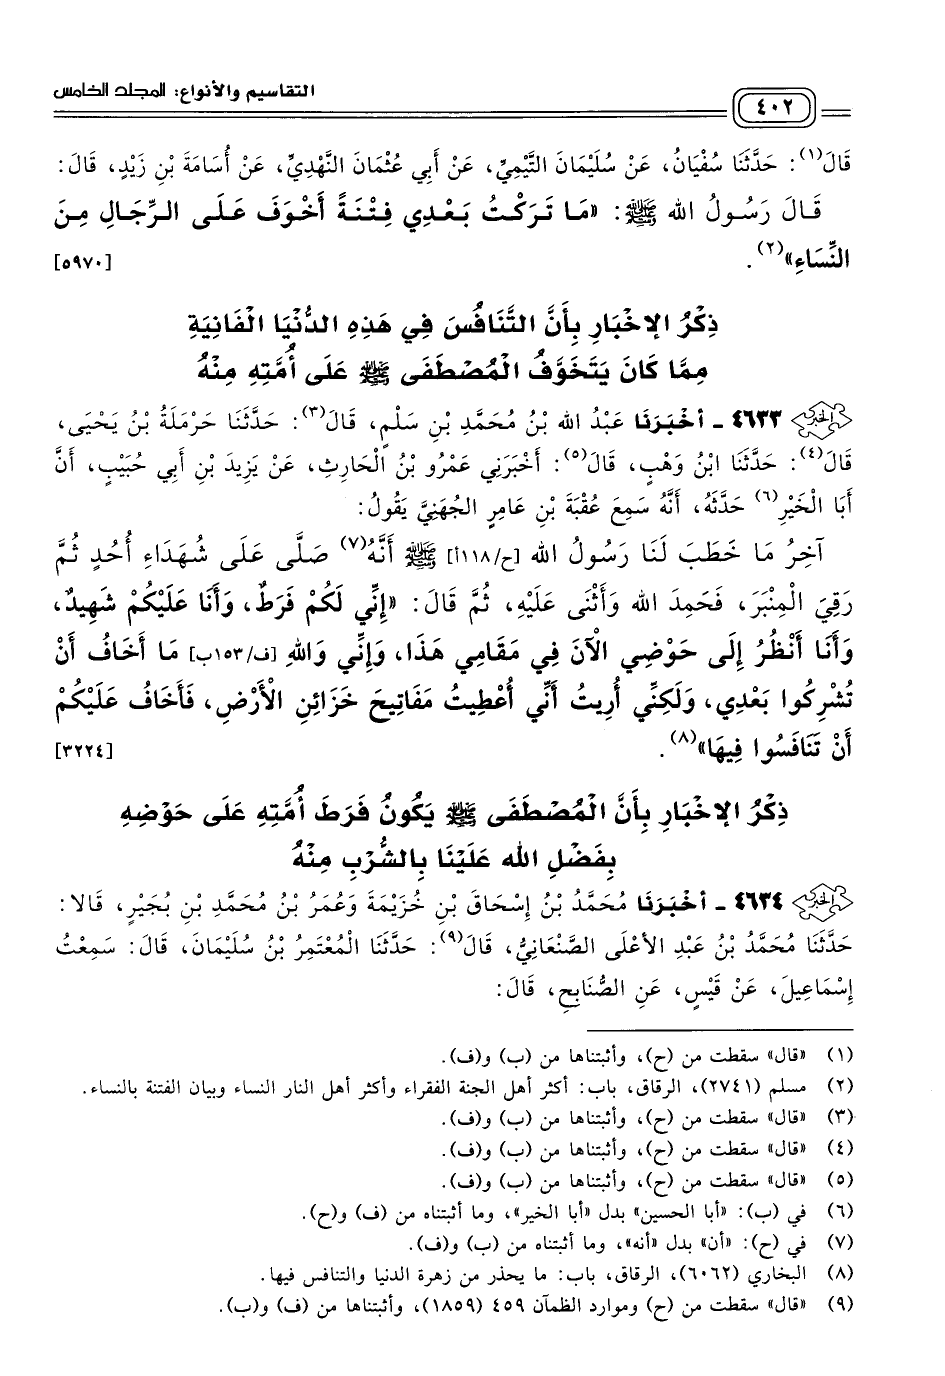 التقاسيم والأنواع: المجلد الخامس
٤٠٢
قَالَ(١): حَدَّثَنَا سُفْيَانُ، عَنْ سُلَيْمَانَ التَّيْمِيِّ، عَنْ أَبِي عُثْمَانَ النَّهْدِيِّ، عَنْ أُسَامَةَ بْنِ زَيْدٍ، قَالَ:
قَالَ رَسُولُ الله ﷺ: «مَا تَرَكْتُ بَعْدِي فِتْنَةً أَخْوَفَ عَلَى الرِّجَالِ مِنَ
النِّسَاءِ»(٢). [٥٩٧٠]
ذِكْرُ الإخْبَارِ بِأَنَّ التَّنَافُسَ فِي هَذِهِ الدُّنْيَا الْفَانِيَةِ
مِمَّا كَانَ يَتَخَوَّفُ الْمُصْطَفَى ﷺ عَلَى أُمَّتِهِ مِنْهُ
الخبر ٤٦٣٣ - أَخْبَرَنَا عَبْدُ الله بْنُ مُحَمَّدِ بْنِ سَلْمٍ، قَالَ(٣): حَدَّثَنَا حَرْمَلَةُ بْنُ يَحْيَى،
قَالَ(٤): حَدَّثَنَا ابْنُ وَهْبٍ، قَالَ(٥): أَخْبَرَنِي عَمْرُو بْنُ الْحَارِثِ، عَنْ يَزِيدَ بْنِ أَبِي حَبِيْبٍ، أَنَّ
أَبَا الْخَيْرِ(٦) حَدَّثَهُ، أَنَّهُ سَمِعَ عُقْبَةَ بْنِ عَامِرٍ الجُهَنِيَّ يَقُولُ:
آخِرُ مَا خَطَبَ لَنَا رَسُولُ الله [ح/١١٨أ] ﷺ أَنَّهُ(٧) صَلَّى عَلَى شُهَدَاءِ أُحُدٍ ثُمَّ
رَقِيَ الْمِنْبَرَ، فَحَمِدَ الله وَأَثْنَى عَلَيْهِ، ثُمَّ قَالَ: «إِنِّي لَكُمْ فَرَطٌ، وَأَنَا عَلَيْكُمْ شَهِيدٌ،
وَأَنَا أَنْظُرُ إِلَى حَوْضِي الْآنَ فِي مَقَامِي هَذَا، وَإِنِّي وَاللهِ [ف/١٥٣ب] مَا أَخَافُ أَنْ
تُشْرِكُوا بَعْدِي، وَلَكِنِّي أُرِيتُ أَنِّي أُعْطِيتُ مَفَاتِيحَ خَزَائِنِ الْأَرْضِ، فَأَخَافُ عَلَيْكُمْ
أَنْ تَنَافَسُوا فِيهَا»(٨). [٣٢٢٤]
ذِكْرُ الإخْبَارِ بِأَنَّ الْمُصْطَفَى ﷺ يَكُونُ فَرَطَ أُمَّتِهِ عَلَى حَوْضِهِ
بِفَضْلِ الله عَلَيْنَا بِالشُّرْبِ مِنْهُ
الخبر ٤٦٣٤ - أَخْبَرَنَا مُحَمَّدُ بْنُ إِسْحَاقَ بْنِ خُزَيْمَةَ وَعُمَرُ بْنُ مُحَمَّدِ بْنِ بُجَيْرٍ، قَالا:
حَدَّثَنَا مُحَمَّدُ بْنُ عَبْدِ الأَعْلَى الصَّنْعَانِيُّ، قَالَ(٩): حَدَّثَنَا الْمُعْتَمِرُ بْنُ سُلَيْمَانَ، قَالَ: سَمِعْتُ
إِسْمَاعِيلَ، عَنْ قَيْسٍ، عَنِ الصُّنَابِحِ، قَالَ:
(١) «قال» سقطت من (ح)، وأثبتناها من (ب) و(ف).
(٢) مسلم (٢٧٤١)، الرقاق، باب: أكثر أهل الجنة الفقراء وأكثر أهل النار النساء وبيان الفتنة بالنساء.
(٣) «قال» سقطت من (ح)، وأثبتناها من (ب) و(ف).
(٤) «قال» سقطت من (ح)، وأثبتناها من (ب) و(ف).
(٥) «قال» سقطت من (ح)، وأثبتناها من (ب) و(ف).
(٦) في (ب): «أبا الحسين» بدل «أبا الخير»، وما أثبتناه من (ف) و(ح).
(٧) في (ح): «أن» بدل «أنه»، وما أثبتناه من (ب) و(ف).
(٨) البخاري (٦٠٦٢)، الرقاق، باب: ما يحذر من زهرة الدنيا والتنافس فيها.
(٩) «قال» سقطت من (ح) وموارد الظمآن ٤٥٩ (١٨٥٩)، وأثبتناها من (ف) و(ب).